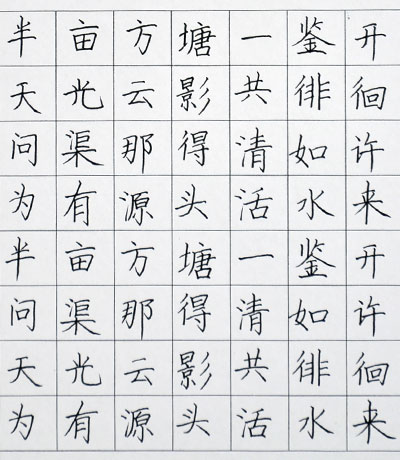 半亩方塘一鉴开
天光云影共徘徊
问渠那得清如许
为有源头活水来
半亩方塘一鉴开
问渠那得清如许
天光云影共徘徊
为有源头活水来